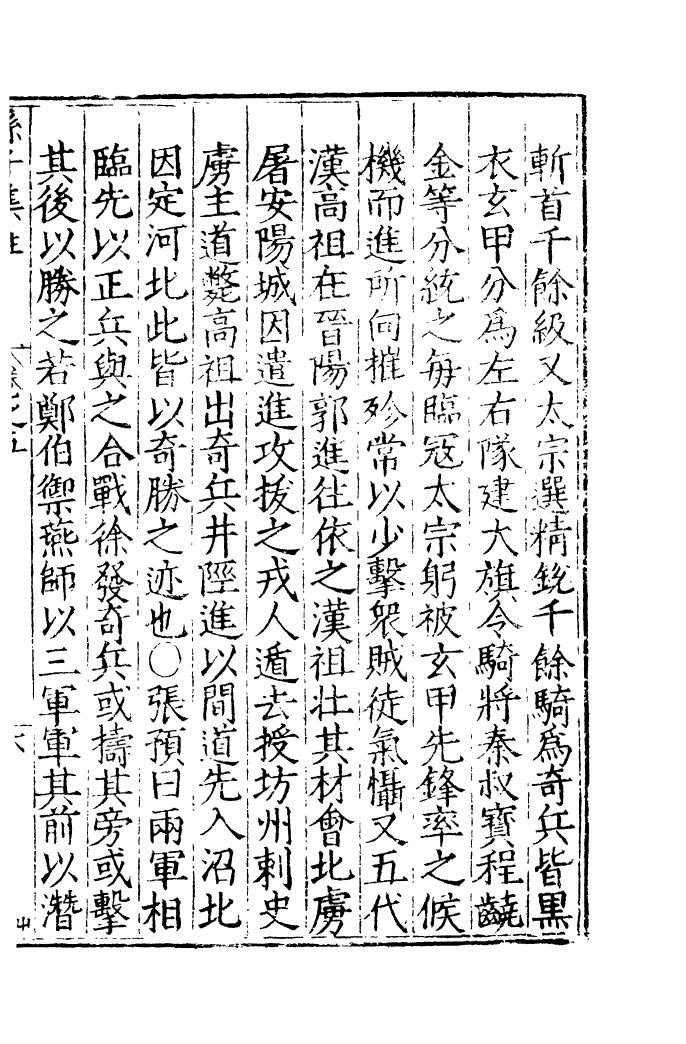 斬首千餘級又太宗選精銳千餘騎爲奇兵皆黑
衣玄甲分爲左右隊建大旗令騎將秦叔寶程齩
金等分統之每臨寇太宗躬被玄甲先鋒率之候
機而進所向摧殄常以少擊衆賊徒氣懾又五代
漢高祖在晉陽郭進往依之漢祖壯其材會北虜
屠安陽城因遣進攻拔之戎人遁去授坊州刺史
虜主道斃高祖出奇兵井陘進以間道先入沼北
因定河北此皆以奇勝之迹也○張預曰兩軍相
臨先以正兵與之合戰徐發奇兵或擣其旁或擊
其後以勝之若鄭伯禦燕師以三軍軍其前以潛
孫子集註 卷之五 六